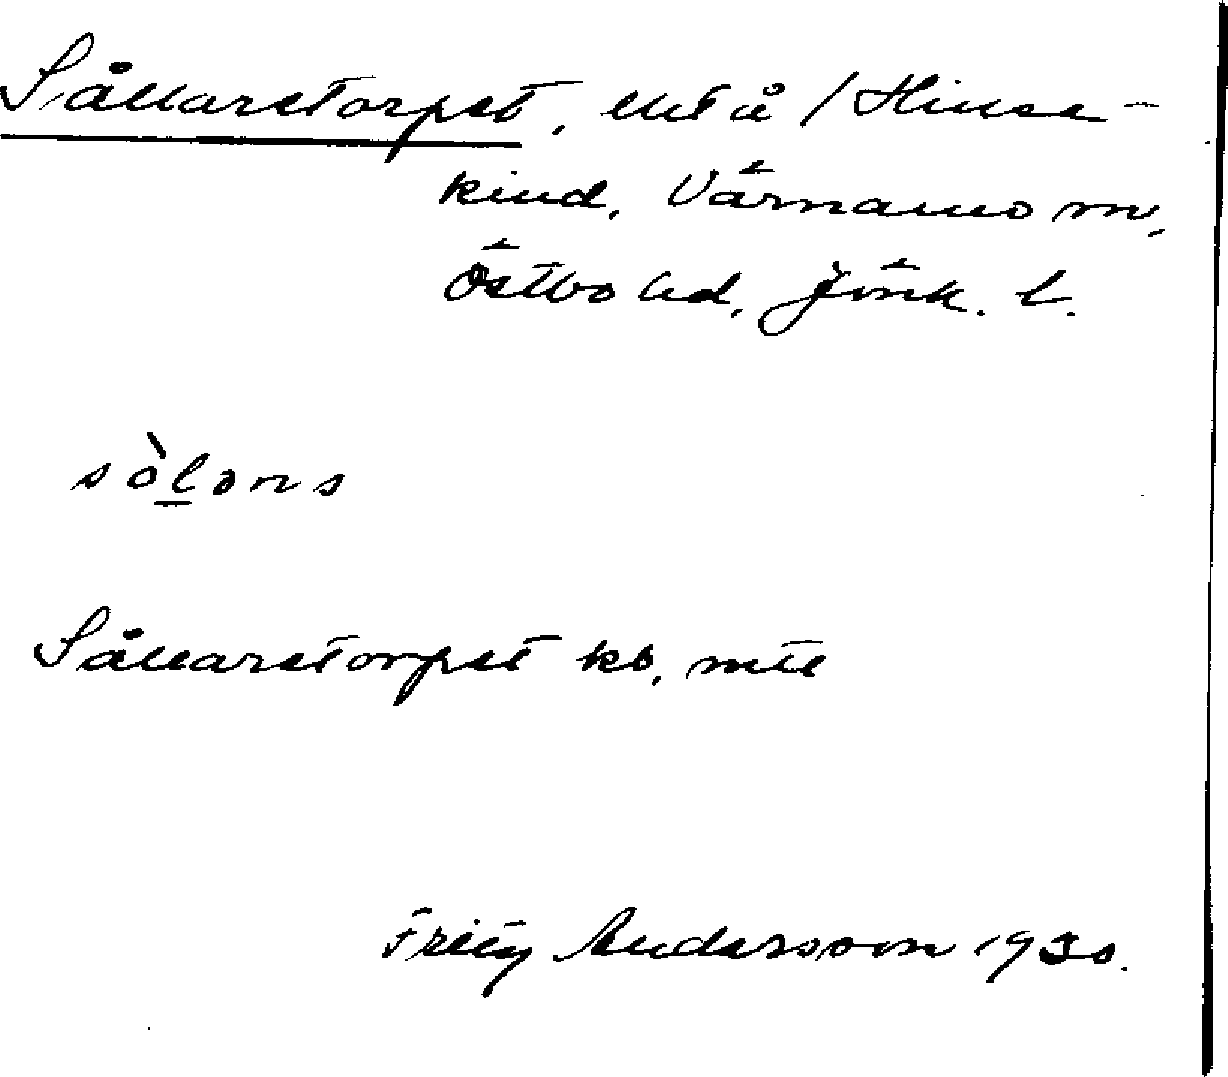 Sållarstorpet, [unclear] / Hinse-
kind, Värnamo m,
Östbo hd, Jönk. l.
sòlans
Sållarstorpet kb, mtl
Fritz Andersson 1930.